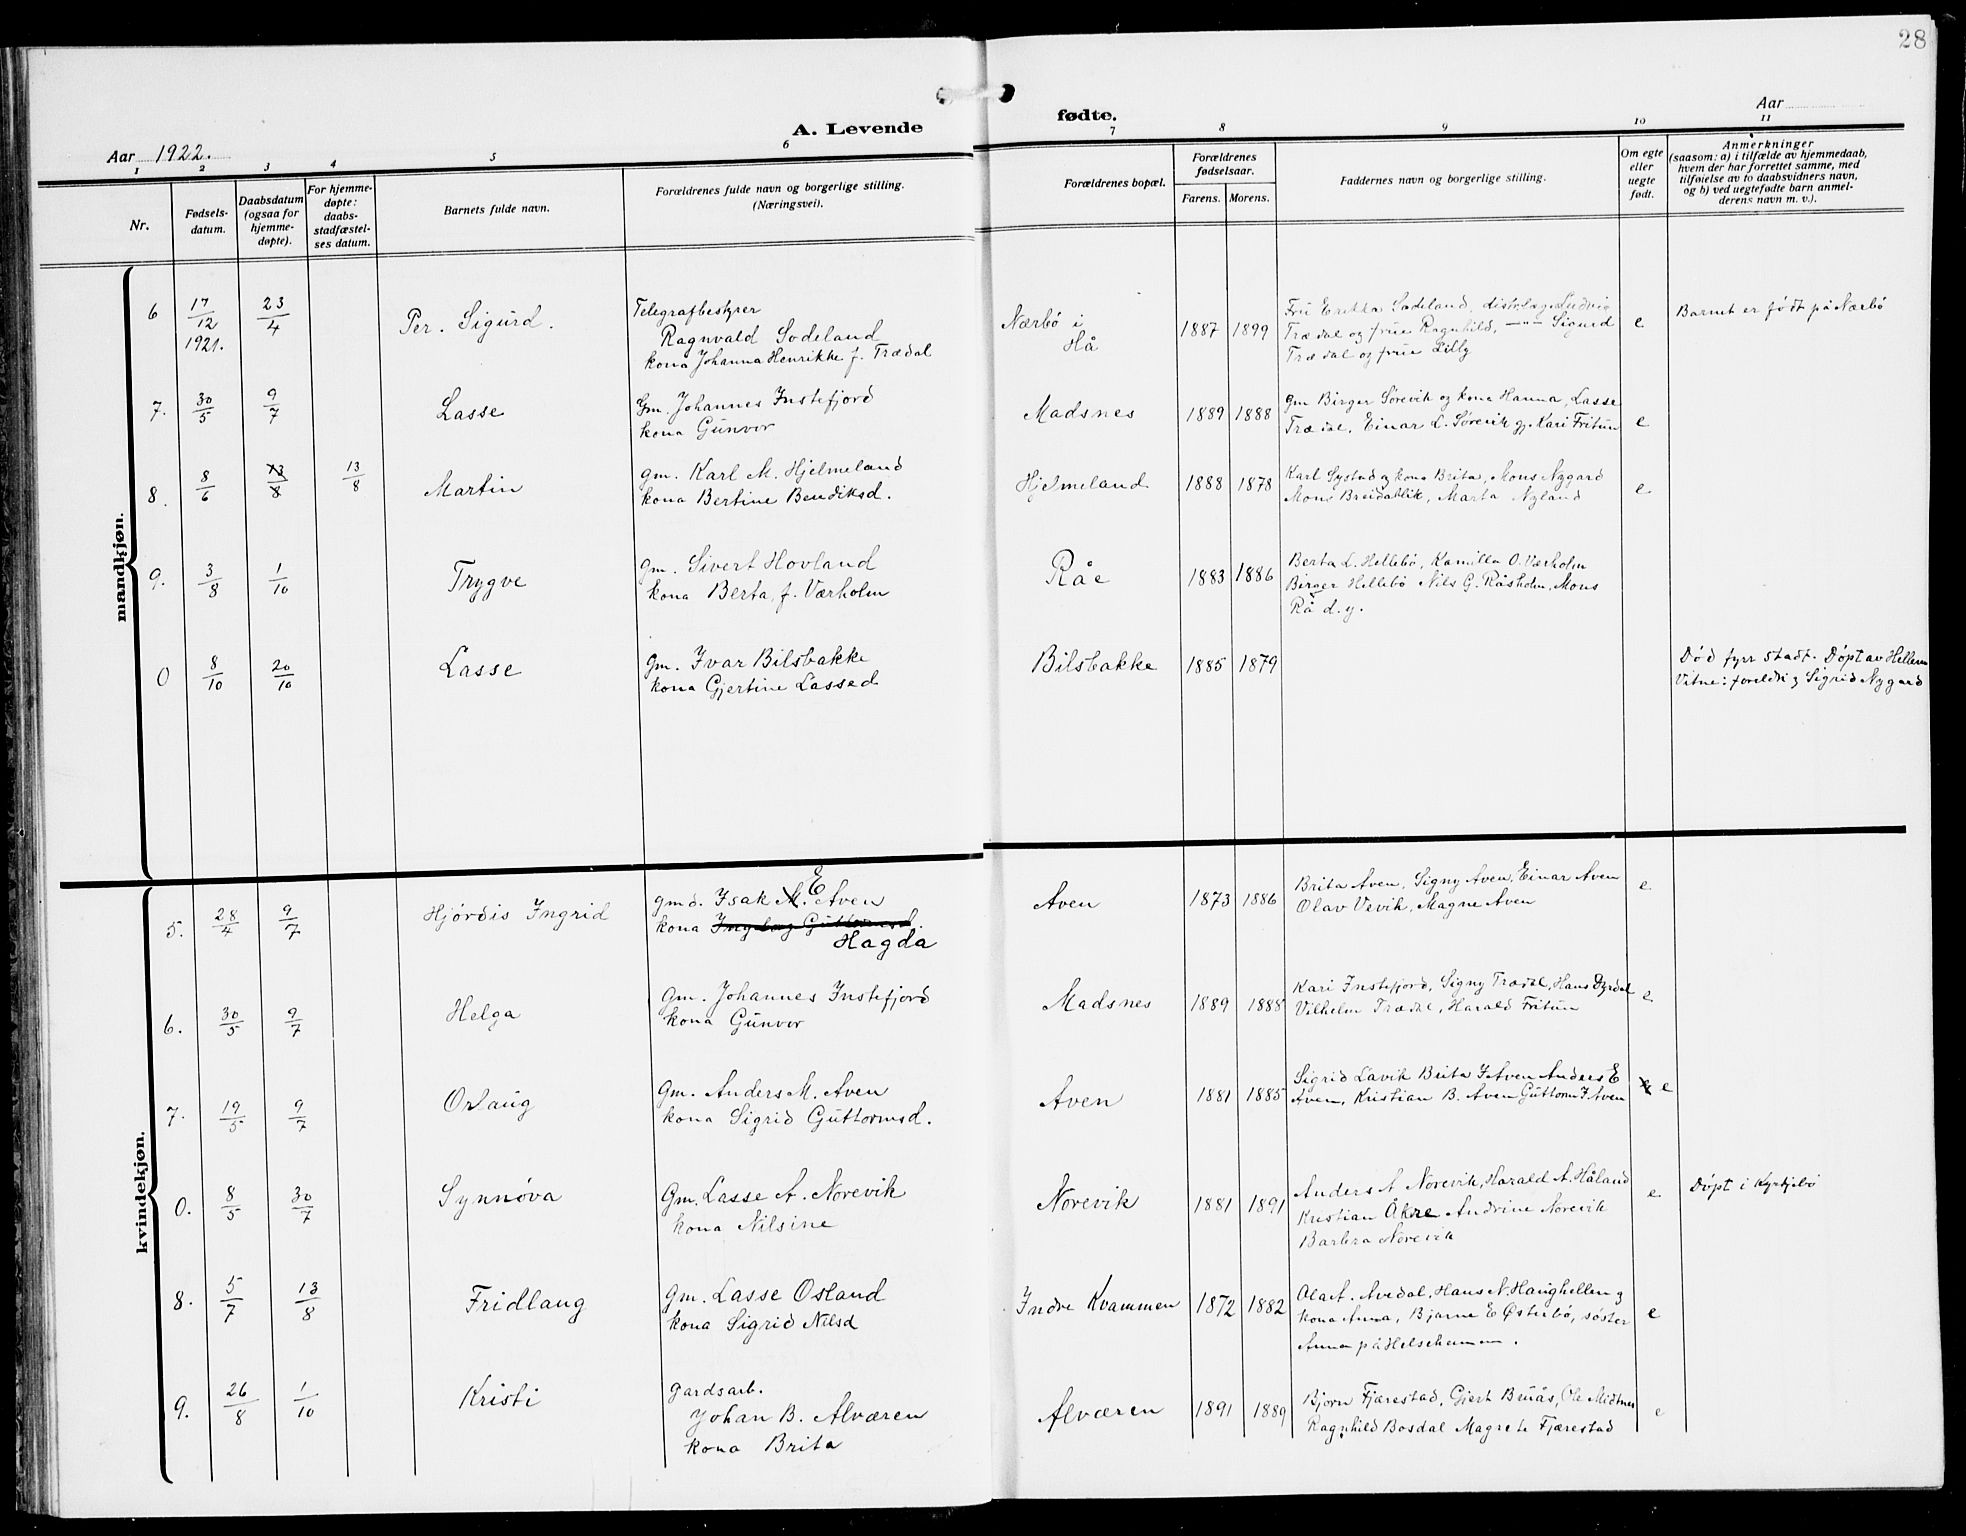 28
A. Levende fødte.
Aar 1922.
Aar
1 2 3 4 5 6 7 8 9 10 11
Nr.
Fødsels-
datum.
Daabsdatum
(ogsaa for
hjemme-
døpte).
For hjemme-
døpte:
daabs-
stadfæstel-
ses datum.
Barnets fulde navn.
Forældrenes fulde navn og borgerlige stilling.
(Næringsvei).
Forældrenes bopæl.
Forældrenes
fødselsaar.
Farens. Morens.
Faddernes navn og borgerlige stilling.
Om egte
eller
uegte
født.
Anmerkninger
(saasom: a) i tilfælde av hjemmedaab,
hvem der har forrettet samme, med
tilføielse av to daabsvidners navn,
og b) ved uegtefødte barn anmel-
derens navn m. v.).
mandkjøn.
6 17/12 1921. 23/4 Per. Sigurd.
Telegrafbestyrer
Ragnvald Sodeland
kona Johanna Henrikke f. Trædal
Nærbö i
Hå
1887 1899
Fru Erikka Sodeland, distrlæge Ludvig
Trædal og frue Ragnhild, —"— Sigurd
Trædal og frue Lilly
e
Barnet er född på Nærbö
7. 30/5 9/7 Lasse
Gm. Johannes Instefjord
kona Gunvor
Madsnes
1889 1888
gm Birger Sørevik og kona Hanna, Lasse
Trædal, Einar L. Sørevik g. Kari Fritun
e
8. 8/6 13/8 13/8 Martin
gm. Karl M. Hjelmeland
kona Bertine Bendiksd.
Hjelmeland
1888 1878
Karl Systad og kona Brita, Mons Nygard
Mons Breidablik, Marta Nyland
e
9. 3/8 1/10 Trygve
Gm. Sivert Hovland
kona Berta, f. Værholm
Råe
1883 1886
Berta L. Hellebö, Kamilla O. Værholm
Birger Hellebö Nils G. Råsholm, Mons
Rå d.y.
0 8/10 20/10 Lasse
Gm. Ivar Bilsbakke
kona Gjertine Lassed
Bilsbakke
1885 1879
Död fyrr stadf. Döpt av Hellem
Vitne: foreldri og Sigrid Nygard
kvindekjøn.
5. 28/4 9/7 Hjördis Ingrid
gmd. Isak M. E Aven
kona Ingeborg Guttormsd.
Magda
Aven
1873 1886
Brita Aven, Signy Aven, Einar Aven
Olav Vevik, Magne Aven
e
6. 30/5 9/7 Helga
Gm. Johannes Instefjord
kona Gunvor
Madsnes
1889 1888
Kari Instefjord, Signy Trædal, Hans Dyrdal
Vilhelm Trædal, Harald Fritun
e
7. 19/5 9/7 Oslaug
Gm. Anders M. Aven
kona Sigrid Guttormsd.
Aven
1881 1885
Sigrid Lavik Brita I Aven Anders E
Aven, Kristian B. Aven Guttorm I Aven
e e
0. 8/5 30/7 Synnöva
Gm. Lasse A. Norevik
kona Nilsine
Norevik
1881 1891
Anders A Norevik, Harald A. Håland
Kristian Åkre Andrine Norevik
Barbra Norevik
e
Döpt i Kyrkjebö
8. 5/7 13/8 Fridlaug
Gm. Lasse Osland
kona Sigrid Nilsd
Indre Kvammen
1872 1882
Ola A. Avedal, Hans N. Haughellen og
kona Anna, Bjarne E Østerbö, søster
Anna på Helseheimen.
e
9. 26/8 1/10 Kristi
Gardsarb.
Johan B. Alværen
kona Brita
Alværen
1891 1889
Bjorn Fjærestad, Gjert Bruås, Ole Midtnes
Ragnhild Bosdal Magrete Fjærestad
e